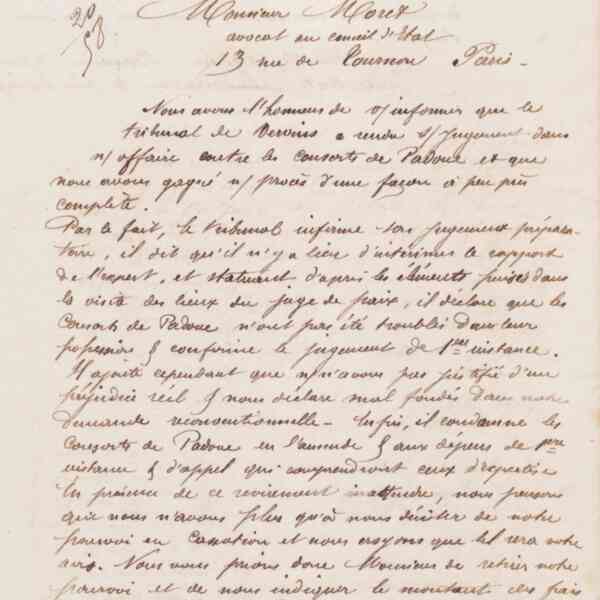 Monsieur Moret
avocat au conseil d'Etat
13 rue de Tournon Paris -
Nous avons l'honneur de v/ informer que le
tribunal de Vervins a rendu s/ jugement dans
n/ affaire contre les consorts de Padoue et que
nous avons gagné n/ procès d'une façon à peu près
complète.
Par le fait, le tribunal infirme son jugement prépara-
toire, il dit qu'il n'y a lieu d'intériner le rapport
de l'expert, et statuant d'après les éléments puisés dans
la visite des lieux du juge de paix, il déclare que les
Consorts de Padoue n'ont pas été troublés dans leur
possession & confirme le jugement de 1ère instance.
Il ajoute cependant que n/ n'avons pas justifié d'un
préjudice réel & nous déclare mal fondés dans notre
demande reconventionnelle - Enfin, il condamne les
Consorts de Padoue en l'amende & aux dépens de 1ère
instance & d'appel qui comprendront ceux d'expertise
En présence de ce revirement inattendu, nous pensons
que nous n'avons plus qu'à nous désister de notre
pourvoi en Cassation et nous croyons que tel sera votre
avis. Nous vous prions donc Monsieur de retirer notre
pourvoi et de nous indiquer le montant des frais